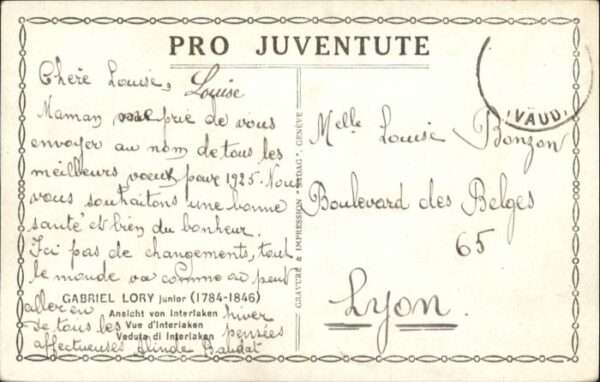 PRO JUVENTUTE
Chère Louise, Louise
Maman me prie de vous
envoyer au nom de tous les
meilleurs voeux pour 1925. Nous
vous souhaitons une bonne
santé et bien du bonheur.
Ici pas de changements, tout
le monde va comme ça peut
aller en hiver
de tous les pensées
affectueuses Baudat
GABRIEL LORY junior (1784-1846)
Ansicht von Interlaken
Vue d'Interlaken
Veduta di Interlaken
GRAVURE & IMPRESSION "SADAG", GENÈVE
(VAUD)
Melle Louise Bonzon
Boulevard des Belges
65
Lyon.